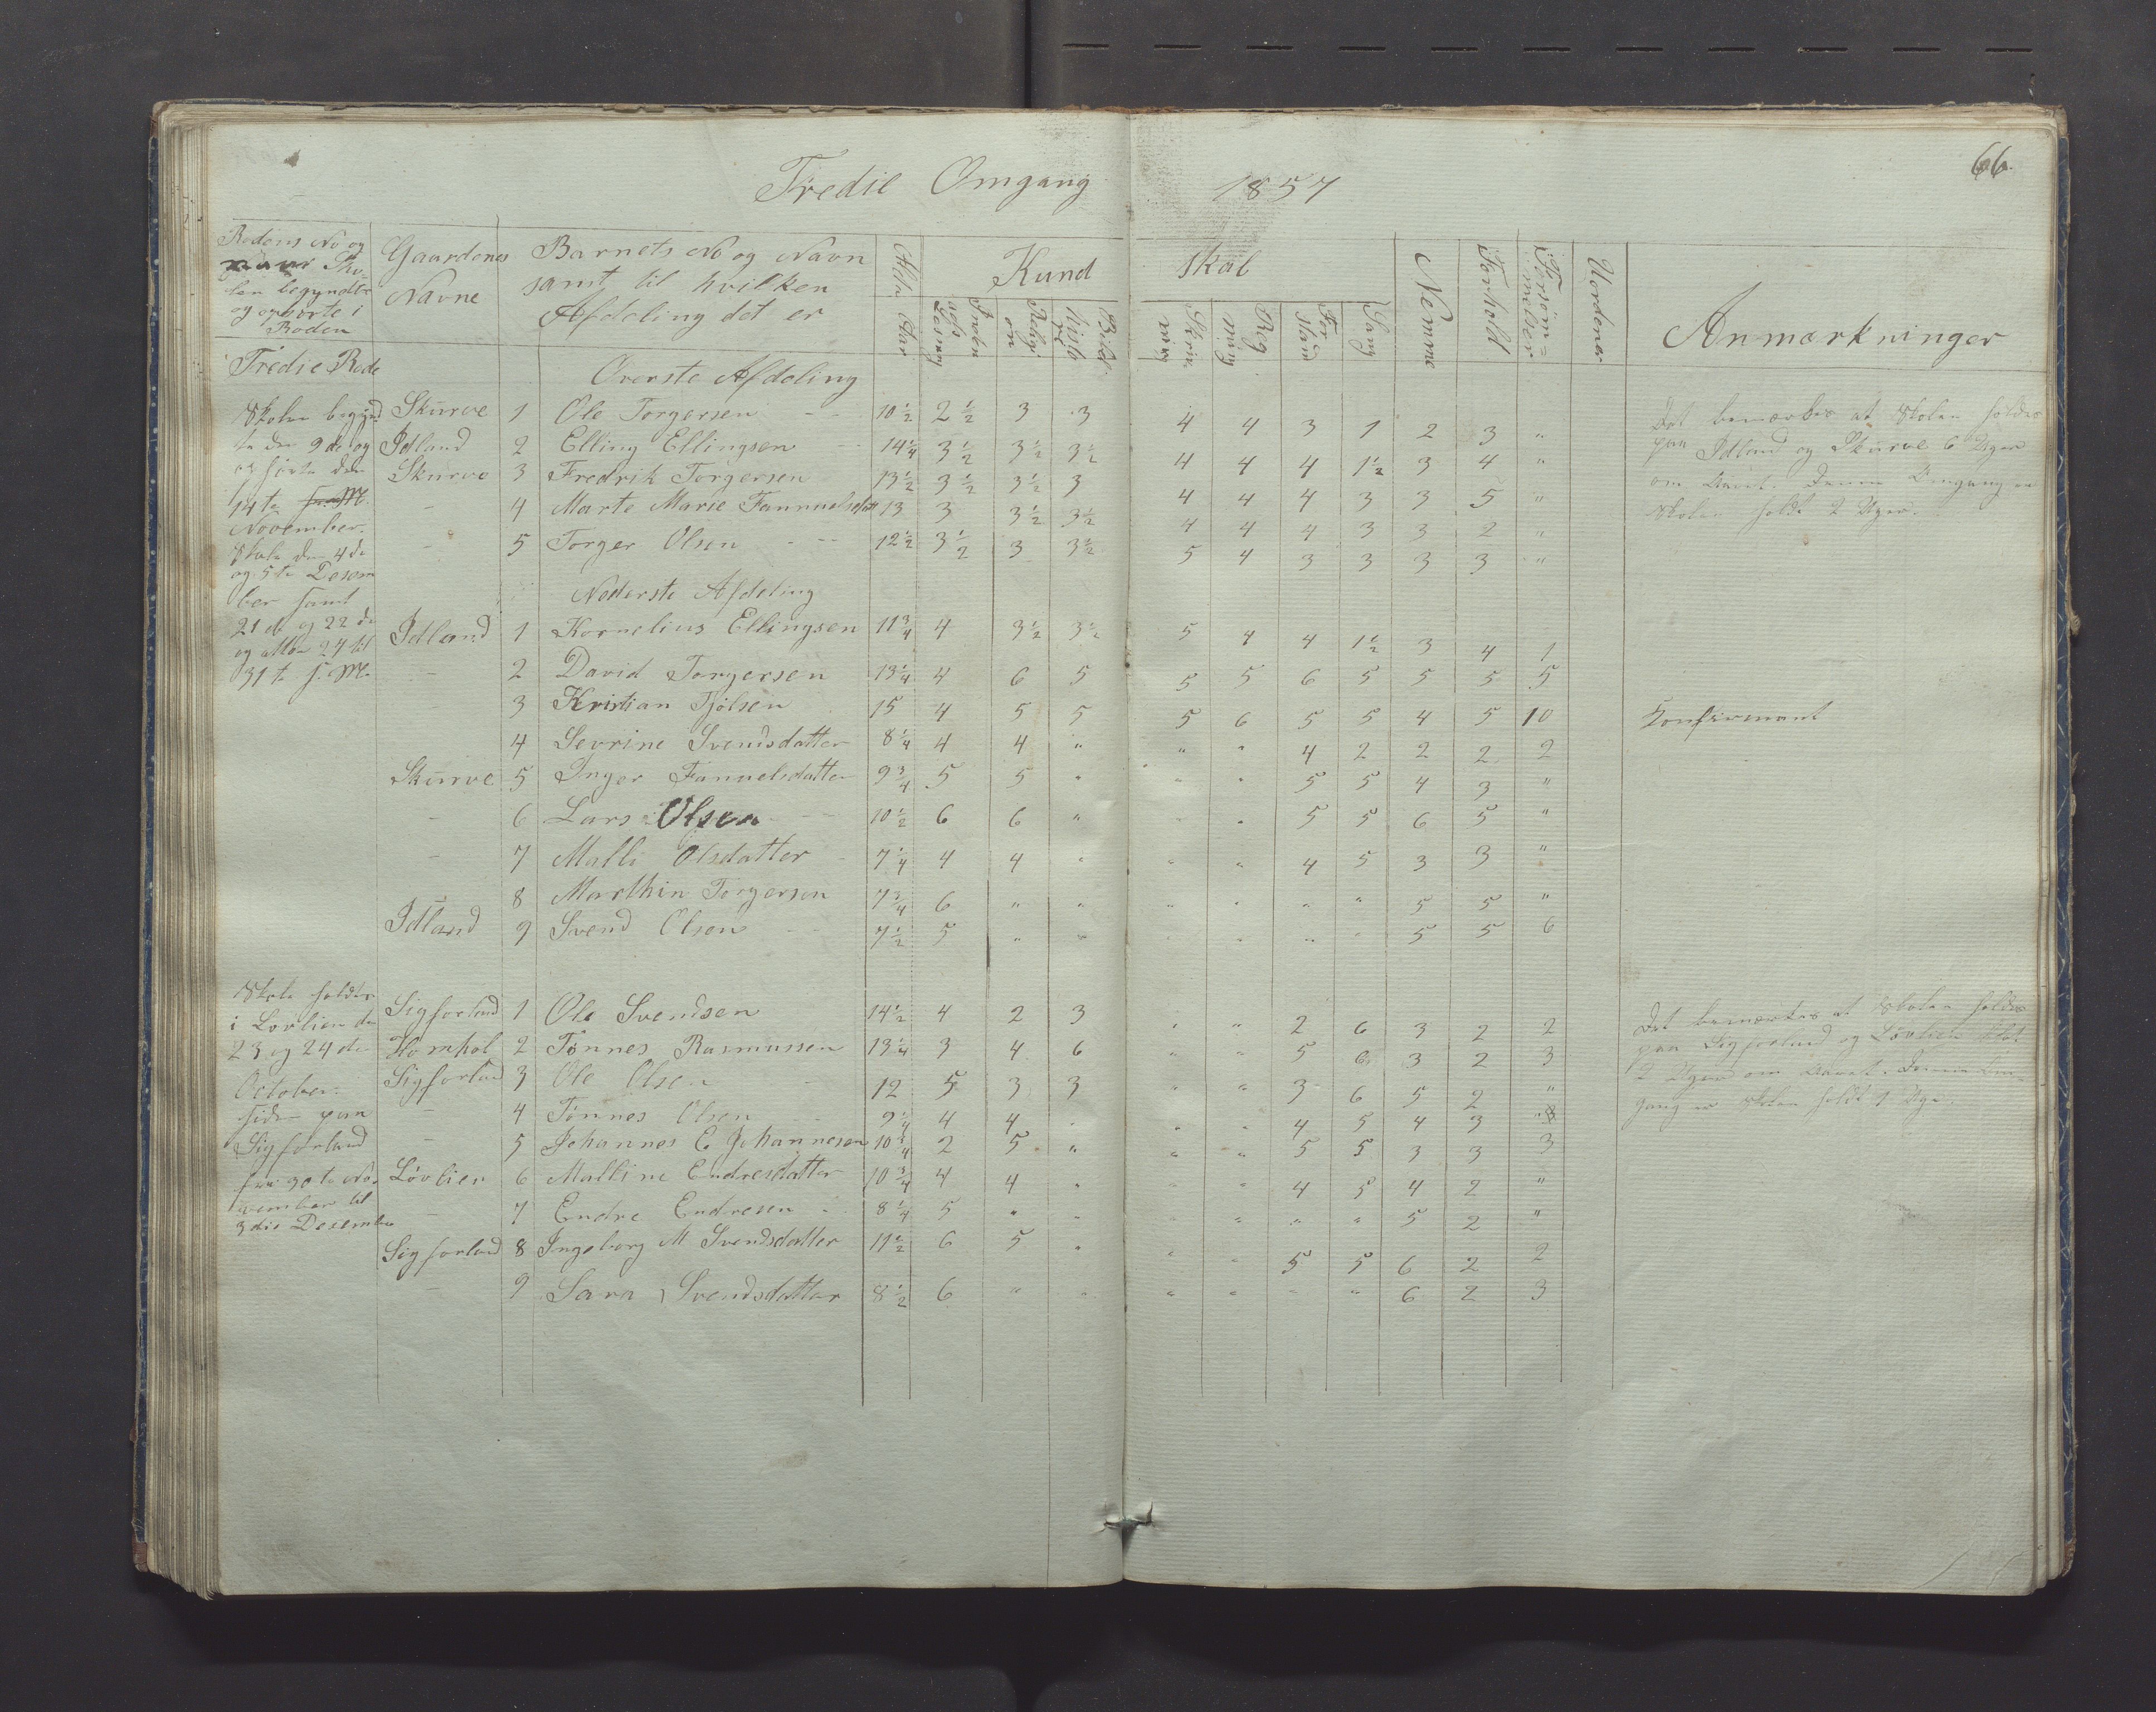 66.
Tredie Omgang 1857
Rodens No og
naar Sko-
len begyndte
og ophørte i
Roden
Gaardenes
Navne
Barnets No og Navn
samt til hvilken
Afdeling det er
Alder Aar
Kund skab
Inden ads Læsning
Religi on
Bibel Histo rie
Skriv ning
Reg ning
For stand
Sang
Nemme
Forhold
Forsøm= melser
Uordener
Anmærkninger
Tredie Rode
Øverste Afdeling
Skurve 1 Ole Torgersen 10 1/2 2 1/2 3 3 4 4 3 1 2 3 "
Idland 2 Elling Ellingsen 14 1/4 3 1/2 3 1/2 3 1/2 4 4 4 1 1/2 3 4 "
Skurve 3 Fredrik Torgersen 13 1/2 3 1/2 3 1/2 3 4 4 4 3 3 5 "
- 4 Marte Marie Fannuelsdatt 13 3 3 1/2 3 1/2 4 4 4 3 3 2 "
- 5 Torger Olsen 12 1/2 3 1/2 3 3 1/2 5 4 3 3 3 3 "
Skolen begynd
te den 9de og
den
14te
November.
Skole den 4de
og 5te Desem
ber samt
21de og 22de
og atter 27 til
31te s. M.
Det bemærkes at Skolen holdes
paa Idland og Skurve 6 Uger
om Aaret. Denne Omgang er
Skolen holdt 2 Uger.
Nederste Afdeling
Idland 1 Kornelius Ellingsen 11 3/4 4 3 1/2 3 1/2 5 4 4 1 1/2 3 4 1
- 2 David Torgersen 13 1/4 4 6 5 5 5 6 5 5 5 5
- 3 Kristian Tjølsen 15 4 5 5 5 6 5 5 4 5 10 Konfirmant
4 Sevrine Svendsdatter 8 1/4 4 4 " " " 4 2 2 2 2
Skurve 5 Inger Fannuelsdatter 9 3/4 5 5 " " " 5 5 4 3 "
- 6 Lars Olsen 10 1/2 6 6 " " " 5 5 6 5 "
- 7 Malli Olsdatter 7 1/4 4 4 " " " 4 5 3 3 "
- 8 Marthin Torgersen 7 3/4 6 " " " " " " 5 5 "
Idland 9 Svend Olsen 7 1/2 5 " " " " " " 5 5 6
Skole holdes
i Løvlien den
23 og 24de
October.
siden paa
Sigforland
fra 30te No-
vember til
3die Desember
Sigforland 1 Ole Svendsen 14 1/2 4 2 3 " " 2 6 3 2 2
Homhol 2 Tønnes Rasmussen 13 1/4 3 4 6 " " 5 6 3 2 3
Sigforland 3 Ole Olsen 12 5 3 3 " " 3 6 5 2 "
- 4 Tønnes Olsen 9 1/4 4 4 " " " 4 5 4 3 "
- 5 Johannes E Johannesen 10 1/4 2 5 " " " 5 5 3 3 3
Løvlien 6 Malline Endresdatter 10 3/4 4 4 " " " 4 5 4 2 "
- 7 Endre Endresen 8 1/4 5 " " " " " " 5 2 "
Sigforland 8 Ingeborg M Svendsdatter 11 1/2 6 5 " " " 5 5 6 2 2
- 9 Sara Svendsdatter 8 1/2 6 " " " " " " 6 2 3
Det bemærkes at Skolen holdes
paa Sigforland og Løvlien
2 Uger om Aaret. Denne Om-
gang er Skolen holdt 1 Uge.